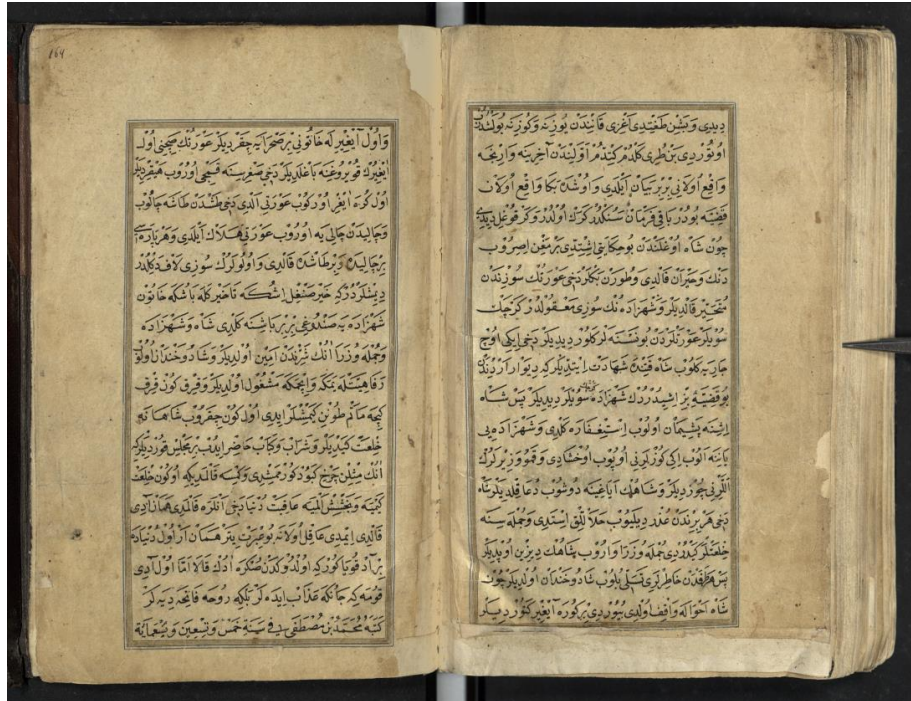 ديدى و بشن طغتدى آغزى قانندن يوزنه و كوزنه بولشدى
اوتوردى بن طرى كلدم كيتدم اولندن آخرينه وارنجه
واقع اولانى بر بر بيان ايلدى و اوشده بكا واقع اولان
قضيه بودر باقى فرمان سنكدر كرك اولدر و كر قوغل ديدى
چون شاه اوغلندن بو حكايتى اشتدى برمغن اصروب
دنك و حيران قالدى و طورن بكلر دخى عورتك سوزندن
متحير قالديلر و شهزاده نك سوزى معقولدر كرچك
سويلر عورتلردن بو نسنه لر كلور ديديلر دخى ايكى اوچ
جاريه كلوب شاه قتنده شهادت ايتديلر كه ديوار اردندن
بو قضيه يى بز اشيدردك شهزاده سويلر ديديلر پس شاه
اشنه پشيمان اولوب استغفاره كلدى و شهزاده يى
ياننه الوب ايكى كوزلرنى اوپوب اوخشادى و قمو وزيرلرك
اللرنى چوزديلر و شاهك اياغنه دوشوب دعا قلديلر شاه
دخى هر برندن عذر ديليوب حلاللق استدى و جمله سنه
خلعتلر كيدردى جمله وزرا واروب شاهك ديزين اوپديلر
پس هر طرفدن خاطرلرى تسلى بلوب شاد و خندان اولديلر چون
شاه احواله واقف اولدى بيوردى بر كوره آيغير كتورديلر
164
و اول آيغيرله خاتونى بر صحرايه چقرديلر عورتك صچنى اول
ايغيرك قويروغنه باغلديلر دخى صغريسنه قمچى اوروب هيقرديلر
اول كره ايغر اوركوب عورتى الدى دخى طشدن طاشه چالوب
و چاليدن چالى يه اوروب عورتى هلاك ايلدى و هر پاره سى
بر چاليده و بر طاشده قالدى و اولولرك سوزى لاف دكلدر
ديمشلردركه خير صنغل اشكه تا خير كله باشكه خاتون
شهزاده يه صندوغى بر بر باشنه كلدى شاه و شهزاده
و جمله وزرا انك شرندن امين اولديلر و شاد و خندان اولوب
رفاهيتله يمكه و ايچمكه مشغول اولديلر و قرق كون قرق
كيجه ماتم طونن كيمشلر ايدى اول كون چقروب شاهانه
خلعت كيديلر و شراب و كباب حاضر ايدب بر مجلس قورديلركه
انك مثلن چرخ كبود كورممشدى و كمسه قالمديكه او كون خلعت
كيميه و بخشش الميه عاقبت دنيا دخى انلره قالمدى همان آدى
قالدى ايمدى عاقل اولانه بو عبرت يتر همان ار اول دنياده
بر آد قويا كور كه اولدوكدن صكره ادك قالا اما اول آدى
قومه كه جانكه عذاب ايده لر بلكه روحه فاتحه ديه لر
كتبه محمد بن مصطفى فى سنة خمس و تسعين و تسعمايه